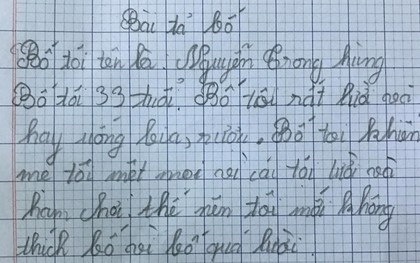 Bài tả bố
Bố tôi tên là: Nguyễn Trong hùng
Bố tôi 33 tuổi. Bố tôi rất
hay uống bia, rượu. Bố tôi khiến
mẹ tôi mệt mỏi cái tôi lười
ham chơi thế nên tôi mới không
thích bố bố quá lười.